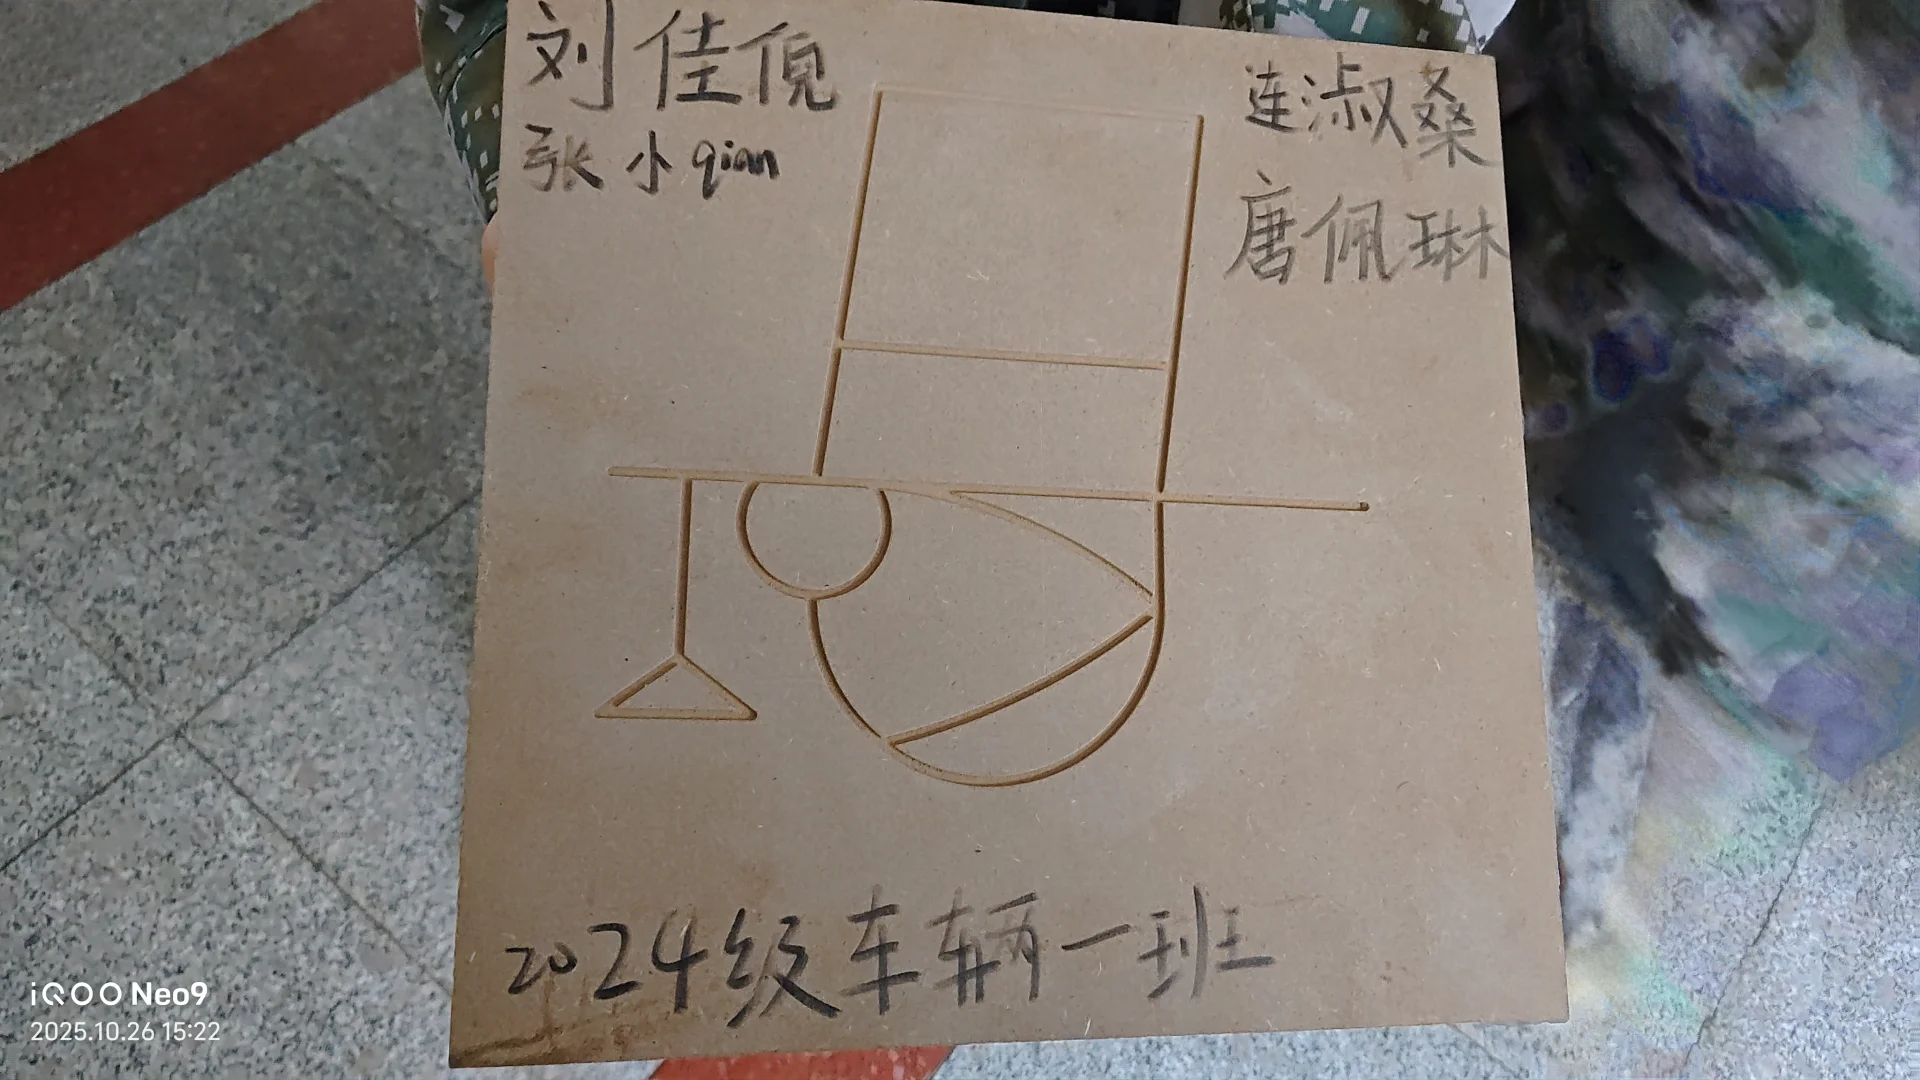 刘佳倪
张小qian
连淑桑
唐佩琳
2024级车辆一班
iQOO Neo9
2025.10.26 15:22